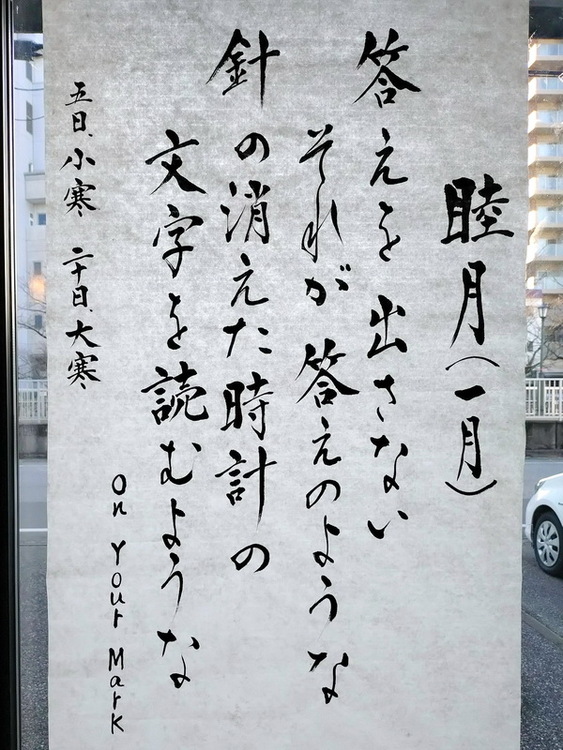 睦月(一月)
答えを出さない
それが答えのような
針の消えた時計の
文字を読むような
on your Mark
五日、小寒 二十日、大寒